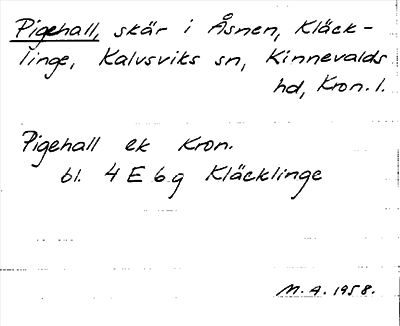 Pigehall, skär i Åsnen, Kläck-
linge, Kalvsviks sn, Kinnevalds
hd, Kron. l.
Pigehall ek Kron.
bl. 4 E 6 g Kläcklinge
M. A. 1958.